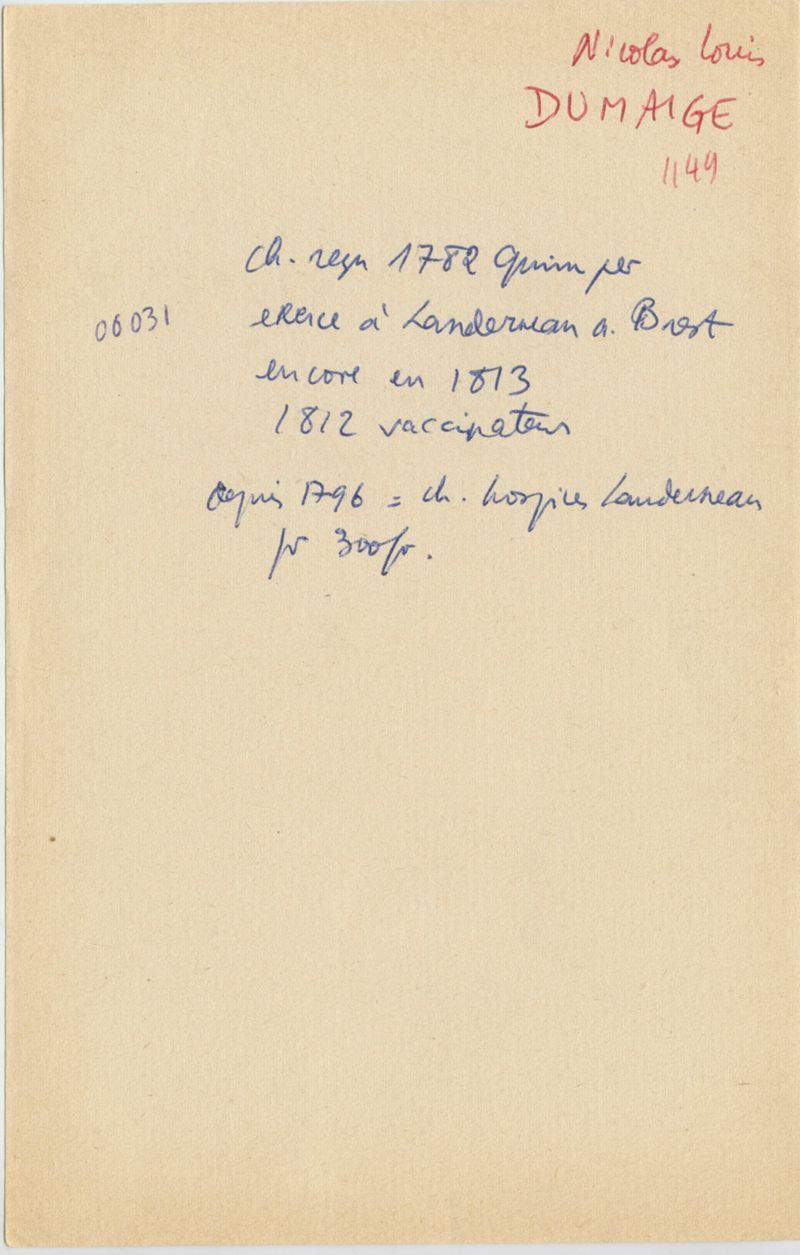 Nicolas Louis
DUMAIGE
1149
ch. reçu 1782 Quimper
06031
exerce à Landerneau a. Brest
encore en 1813
1812 vaccinateur
depuis 1796 = ch. hospices Landerneau
pr 300fr.